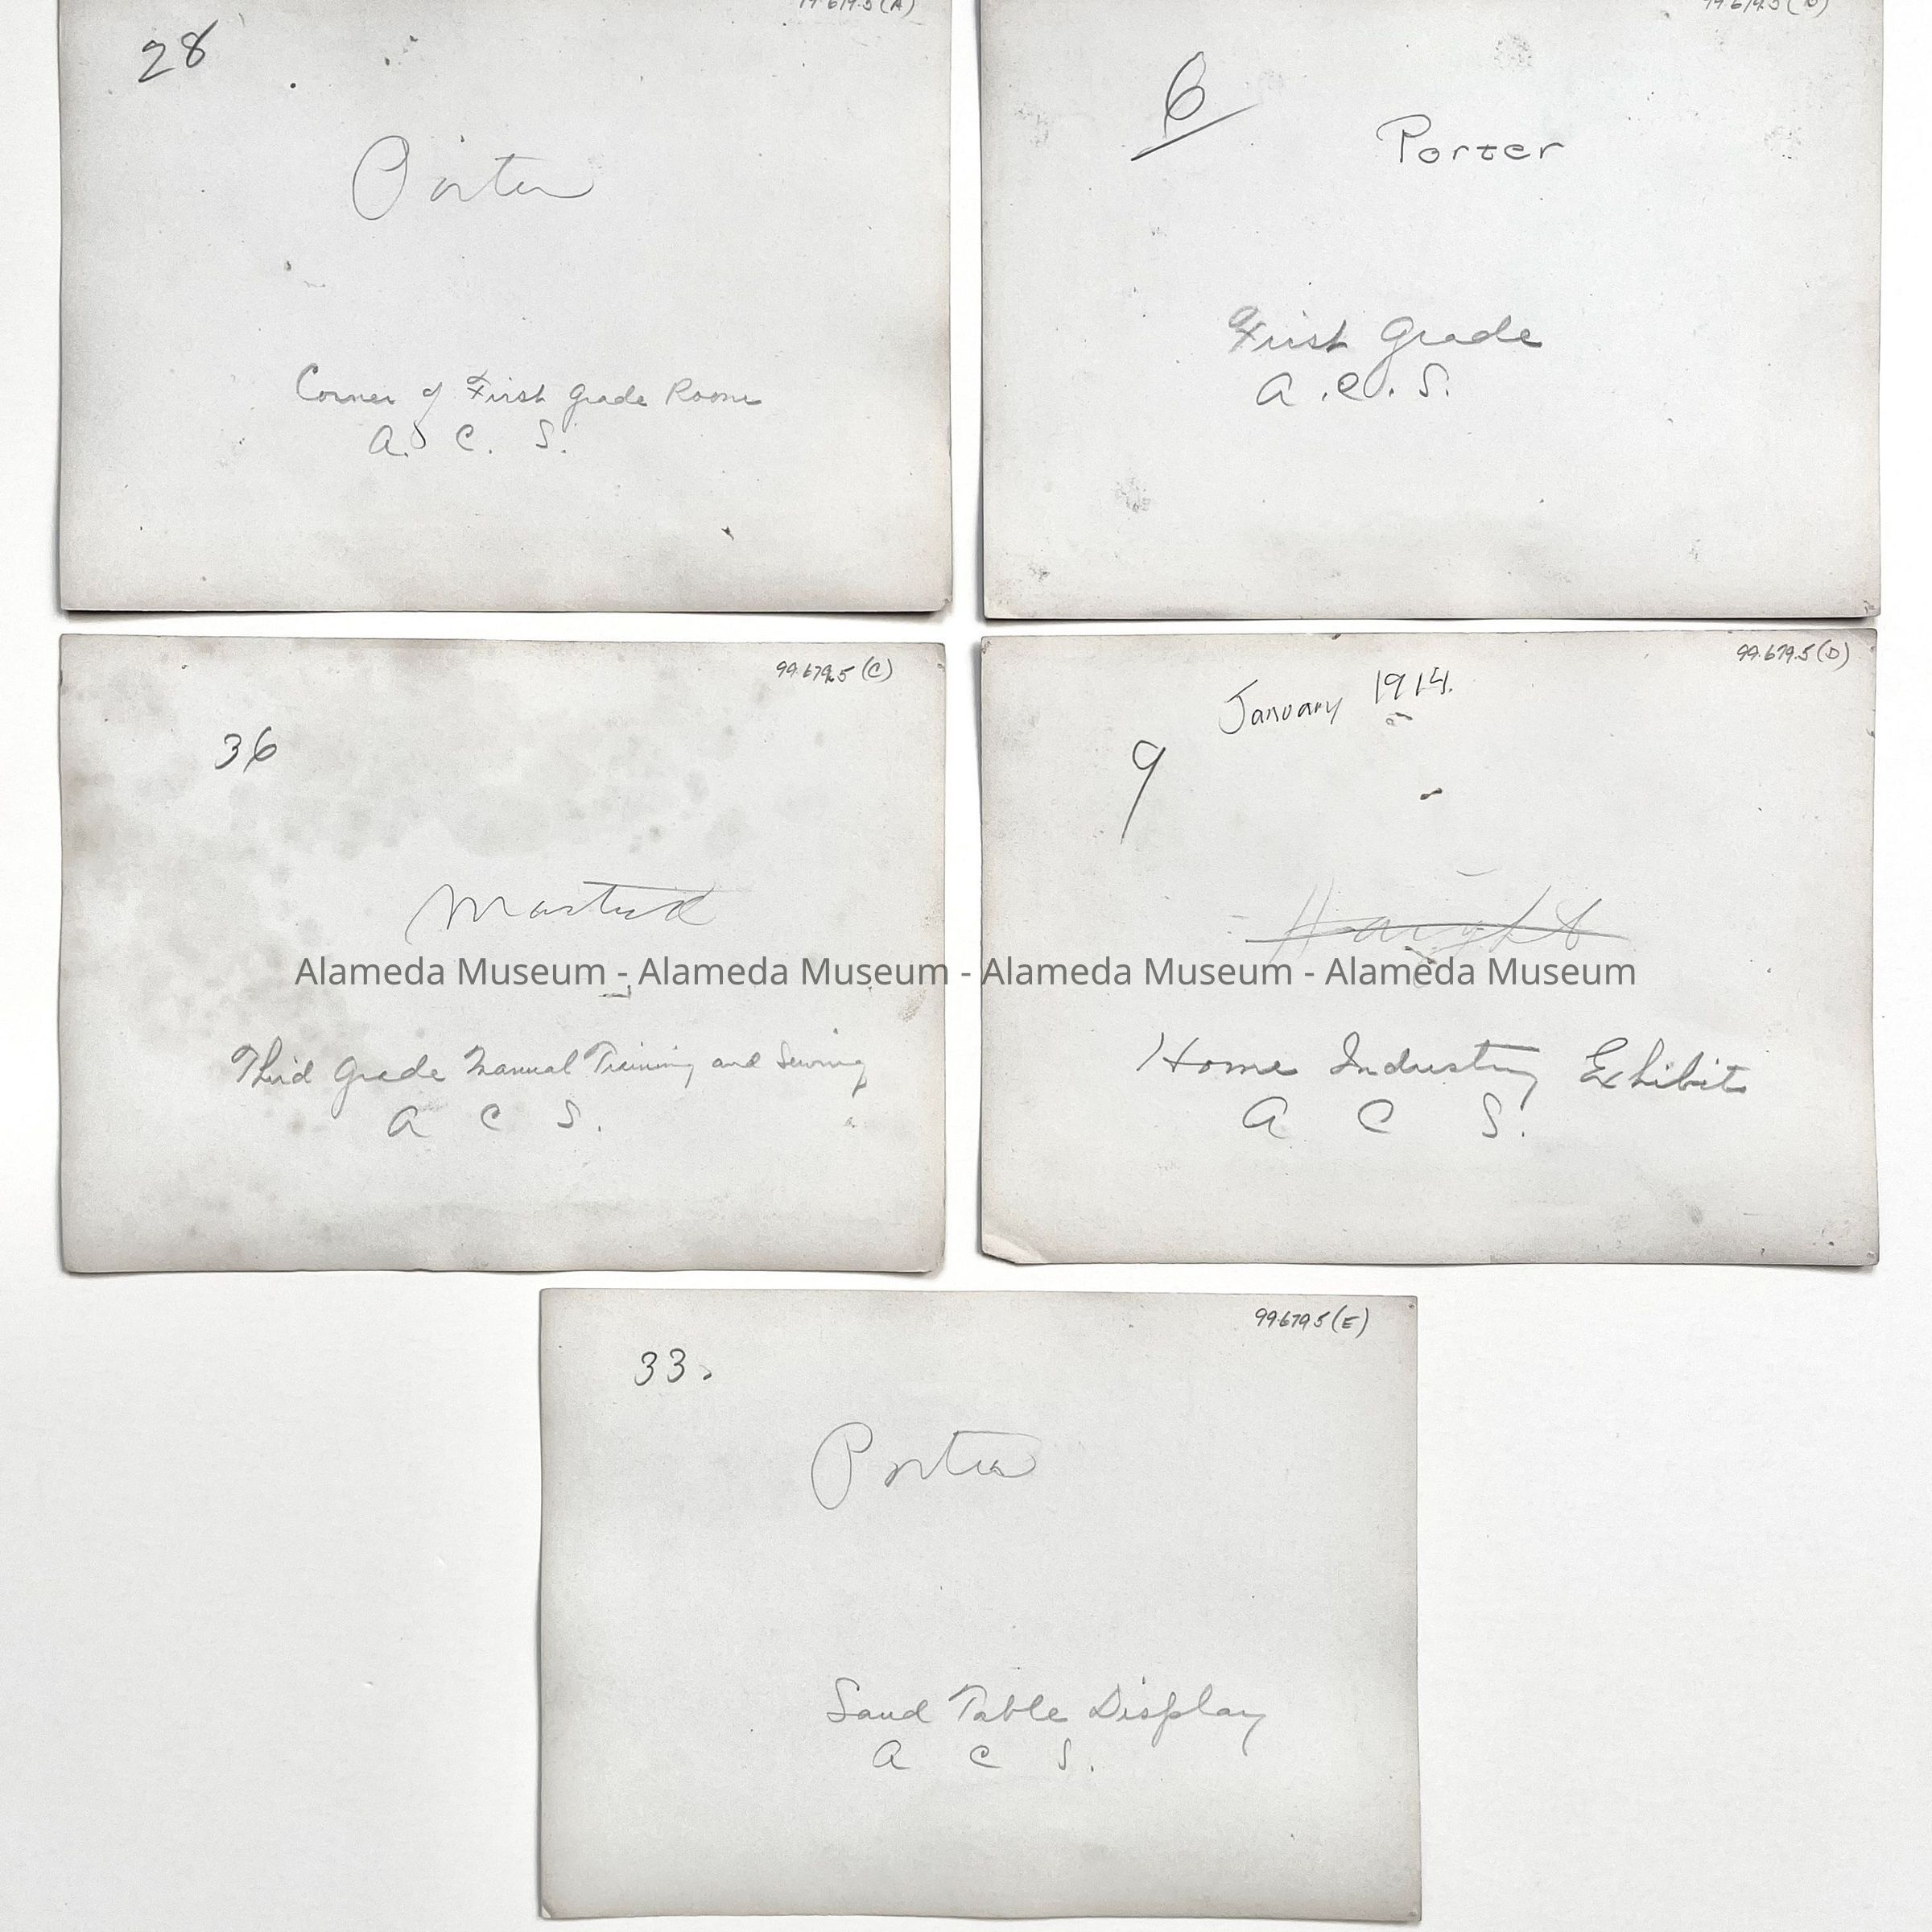 99.679.5 (A)
28
Porter
Corner of First Grade Room
A. C. S.
6
Porter
First Grade
A. C. S.
99.679.5 (C)
36
Mastick
Third Grade Manual Training and Sewing
A C S.
99.679.5 (D)
January 1914.
9
Haight
Home Industry Exhibit
A C S.
Alameda Museum - Alameda Museum - Alameda Museum - Alameda Museum
99.679.5 (E)
33.
Porter
Sand Table Display
A C S.